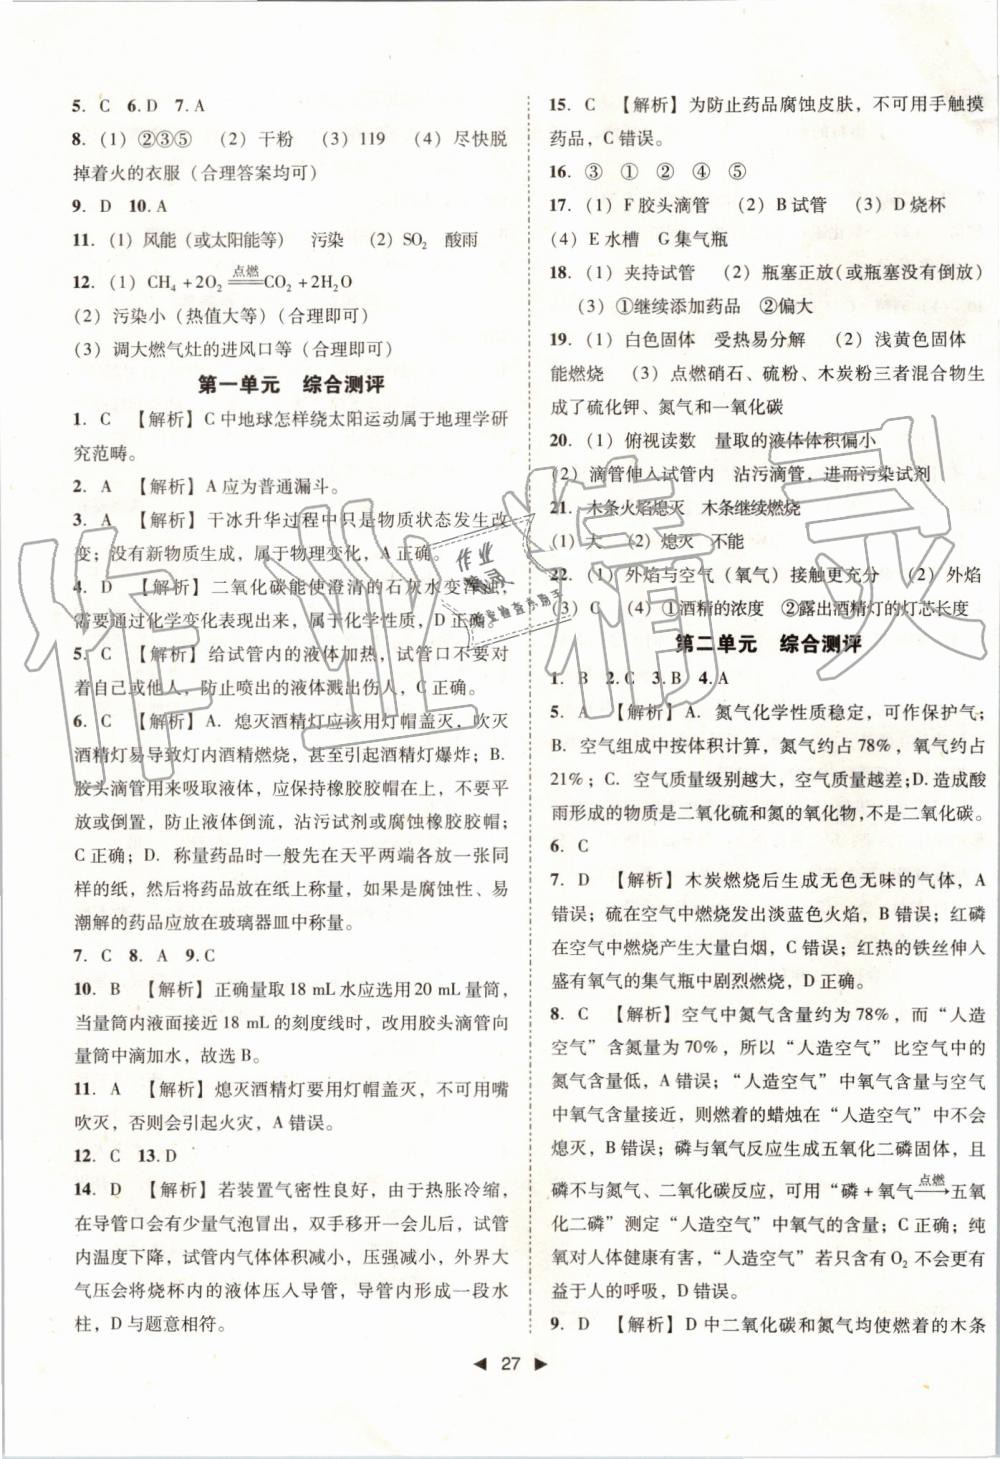 5. C 6. D 7. A
8. (1) ②③⑤ (2) 干粉 (3) 119 (4) 尽快脱
掉着火的衣服(合理答案均可)
9. D 10. A
11. (1) 风能(或太阳能等) 污染 (2) SO₂ 酸雨
12. (1) CH₄+2O₂ 点燃═ CO₂+2H₂O
(2) 污染小(热值大等)(合理即可)
(3) 调大燃气灶的进风口等(合理即可)
第一单元 综合测评
1. C 【解析】C中地球怎样绕太阳运动属于地理学研
究范畴。
2. A 【解析】A应为普通漏斗。
3. A 【解析】干冰升华过程中只是物质状态发生改
变;没有新物质生成,属于物理变化,A正确。
4. D 【解析】二氧化碳能使澄清的石灰水变浑浊,
需要通过化学变化表现出来,属于化学性质,D正确。
5. C 【解析】给试管内的液体加热,试管口不要对
着自己或他人,防止喷出的液体溅出伤人,C正确。
6. C 【解析】A.熄灭酒精灯应该用灯帽盖灭,吹灭
酒精灯易导致灯内酒精燃烧,甚至引起酒精灯爆炸;B.
胶头滴管用来吸取液体,应保持橡胶胶帽在上,不要平
放或倒置,防止液体倒流,沾污试剂或腐蚀橡胶胶帽;
C正确;D.称量药品时一般先在天平两端各放一张同
样的纸,然后将药品放在纸上称量,如果是腐蚀性、易
潮解的药品应放在玻璃器皿中称量。
7. C 8. A 9. C
10. B 【解析】正确量取18 mL水应选用20 mL量筒,
当量筒内液面接近18 mL的刻度线时,改用胶头滴管向
量筒中滴加水,故选B。
11. A 【解析】熄灭酒精灯要用灯帽盖灭,不可用嘴
吹灭,否则会引起火灾,A错误。
12. C 13. D
14. D 【解析】若装置气密性良好,由于热胀冷缩,
在导管口会有少量气泡冒出,双手移开一会儿后,试管
内温度下降,试管内气体体积减小,压强减小,外界大
气压会将烧杯内的液体压入导管,导管内形成一段水
柱,D与题意相符。
15. C 【解析】为防止药品腐蚀皮肤,不可用手触摸
药品,C错误。
16. ③ ① ② ④ ⑤
17. (1) F胶头滴管 (2) B试管 (3) D烧杯
(4) E水槽 G集气瓶
18. (1) 夹持试管 (2) 瓶塞正放(或瓶塞没有倒放)
(3) ①继续添加药品 ②偏大
19. (1) 白色固体 受热易分解 (2) 浅黄色固体
能燃烧 (3) 点燃硝石、硫粉、木炭粉三者混合物生
成了硫化钾、氮气和一氧化碳
20. (1) 俯视读数 量取的液体体积偏小
(2) 滴管伸入试管内 沾污滴管,进而污染试剂
21. 木条火焰熄灭 木条继续燃烧
(1) 大 (2) 熄灭 不能
22. (1) 外焰与空气(氧气)接触更充分 (2) 外焰
(3) C (4) ①酒精的浓度 ②露出酒精灯的灯芯长度
第二单元 综合测评
1. B 2. C 3. B 4. A
5. A 【解析】A.氮气化学性质稳定,可作保护气;
B.空气组成中按体积计算,氮气约占78%,氧气约占
21%;C.空气质量级别越大,空气质量越差;D.造成酸
雨形成的物质是二氧化硫和氮的氧化物,不是二氧化碳。
6. C
7. D 【解析】木炭燃烧后生成无色无味的气体,A
错误;硫在空气中燃烧发出淡蓝色火焰,B错误;红磷
在空气中燃烧产生大量白烟,C错误;红热的铁丝伸入
盛有氧气的集气瓶中剧烈燃烧,D正确。
8. C 【解析】空气中氮气含量约为78%,而“人造
空气”含氮量为70%,所以“人造空气”比空气中的
氮气含量低,A错误;“人造空气”中氧气含量与空气
中氧气含量接近,则燃着的蜡烛在“人造空气”中不会
熄灭,B错误;磷与氧气反应生成五氧化二磷固体,且
磷不与氮气、二氧化碳反应,可用“磷+氧气 点燃→ 五氧
化二磷”测定“人造空气”中氧气的含量;C正确;纯
氧对人体健康有害,“人造空气”若只含有O₂不会更有
益于人的呼吸,D错误。
9. D 【解析】D中二氧化碳和氮气均使燃着的木条
27
作业精灵